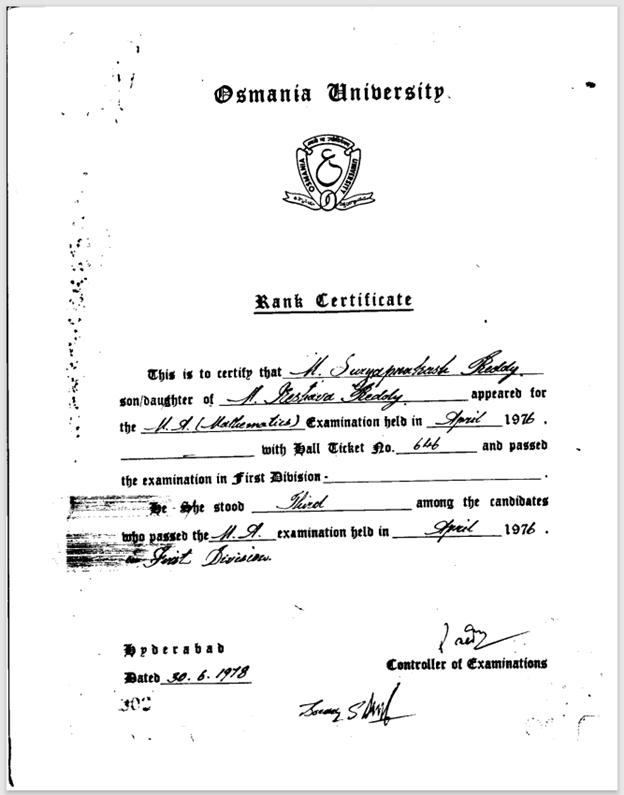 Osmania University
OSMANIA UNIVERSITY
Rank Certificate
This is to certify that M. Suryaprakash Reddy.
son/daughter of M. Keshava Reddy. appeared for
the M.A (Mathematics) Examination held in April 1976.
— with Hall Ticket No. 646 and passed
the examination in First Division - .
He She stood Third among the candidates
who passed the M.A. examination held in April 1976.
in First Division.
Hyderabad
Controller of Examinations
Dated 30.6.1978
302